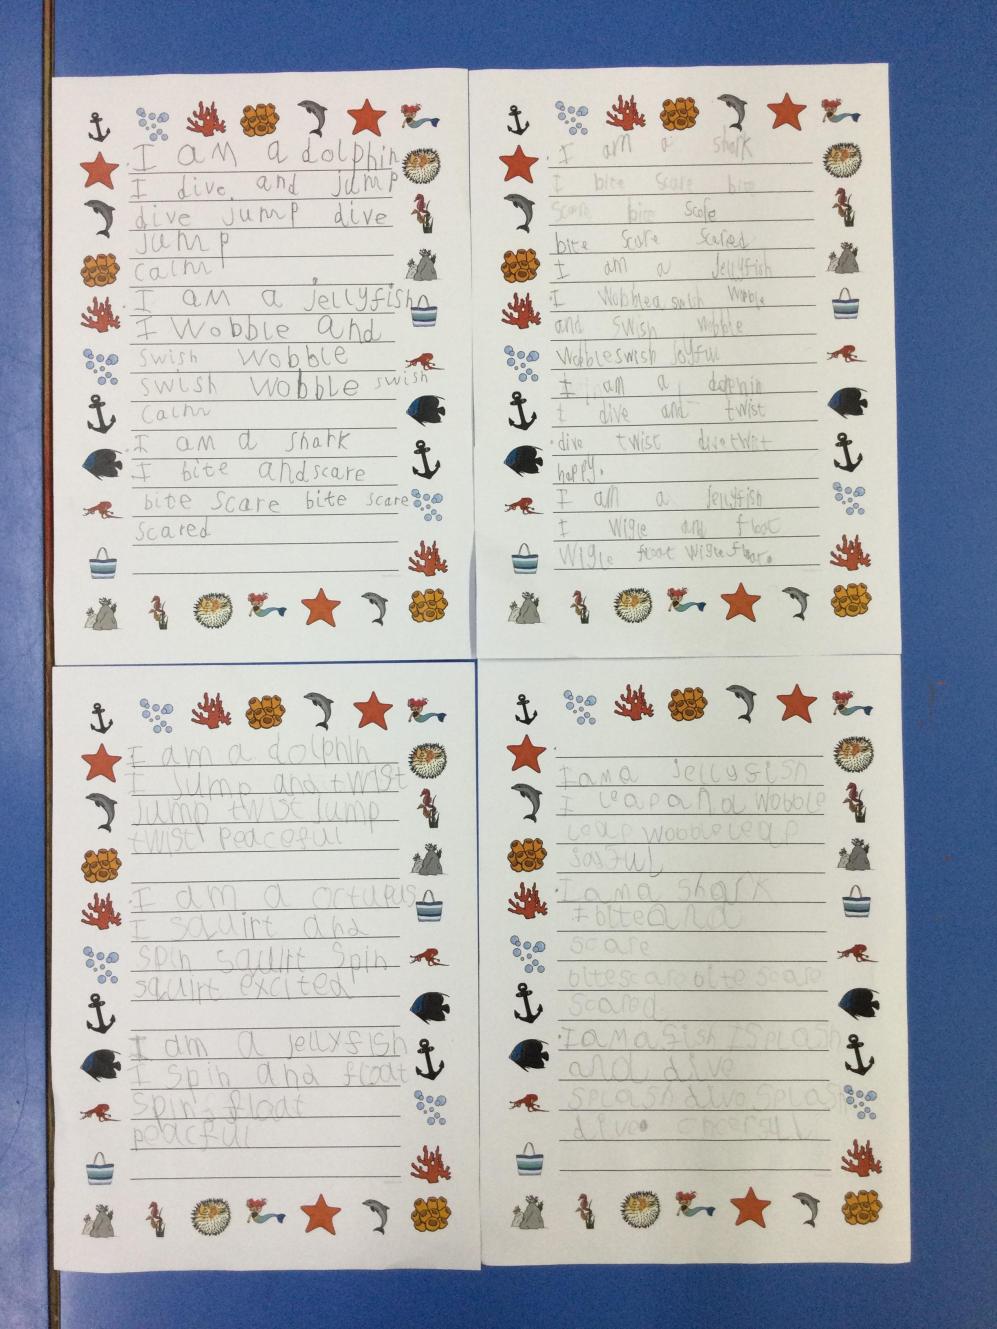 I am a dolphin
I dive and jump
dive jump dive
jump
calm
I am a jellyfish
I wobble and
swish wobble
swish wobble swish
calm
I am a shark
I bite andscare
bite scare bite scare
scared
I am a shark
I bite scare bite
scare bite scare
bite scare scared
I am a jellyfish
I wobble swish wobble
and swish wobble
wobbleswish joyful
I am a dolphin
I dive and twist
dive twist divetwist
happy.
I am a jellyfish
I wigle and float
wigle float wiglefloat.
I am a dolphin
I jump and twist
jump twist jump
twist peaceful
I am a octupus
I squirt and
spin squirt spin
squirt excited
I am a jellyfish
I spin and float
spin float
peacful
I am a jellyfish
I leap and wobble
leap wobble leap
I am a shark
I bite and
scare
bitescarebite scare
scared
I am a fish I splash
and dive
splash dive splash
dive.